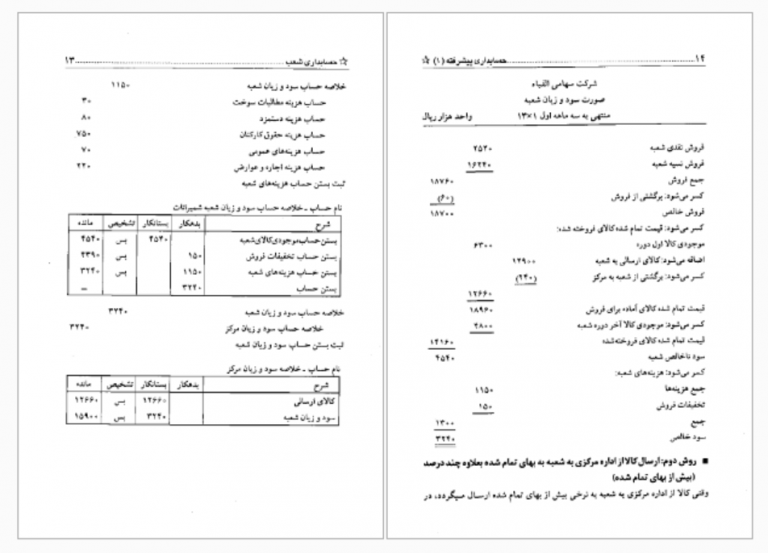 ۱۳ حسابداری شعب ☆
خلاصه حساب سود و زیان شعبه ۱۱۵۰
حساب هزینه مطالبات سوخت ۳۰
حساب هزینه دستمزد ۸۰
حساب هزینه حقوق کارکنان ۷۵۰
حساب هزینه‌های عمومی ۷۰
حساب هزینه اجاره و عوارض ۲۲۰
ثبت بستن حساب هزینه‌های شعبه
نام حساب ـ خلاصه حساب سود و زیان شعبه شمیرانات
شرح بدهکار بستانکار تشخیص مانده
بستن حساب موجودی کالای شعبه ۴۵۴۰ بس ۴۵۴۰
بستن حساب تخفیفات فروش ۱۵۰ بس ۴۳۹۰
بستن حساب هزینه‌های شعبه ۱۱۵۰ بس ۳۲۴۰
بستن حساب ۳۲۴۰ –
خلاصه حساب سود و زیان شعبه ۳۲۴۰
خلاصه حساب سود و زیان مرکز ۳۲۴۰
ثبت بستن حساب سود و زیان شعبه
نام حساب ـ خلاصه حساب سود و زیان مرکز
شرح بدهکار بستانکار تشخیص مانده
کالای ارسالی ۱۲۶۶۰ بس ۱۲۶۶۰
سود و زیان شعبه ۳۲۴۰ بس ۱۵۹۰۰
۱۴ حسابداری پیشرفته (۱) ☆
شرکت سهامی الفباء
صورت سود و زیان شعبه
منتهی به سه ماهه اول ۱×۱۳ واحد هزار ریال
فروش نقدی شعبه ۲۵۲۰
فروش نسیه شعبه ۱۶۲۴۰
جمع فروش ۱۸۷۶۰
کسر می‌شود: برگشتی از فروش (۶۰)
فروش خالص ۱۸۷۰۰
کسر می‌شود: قیمت تمام شده کالای فروخته شده:
موجودی کالا اول دوره ۶۳۰۰
اضافه می‌شود: کالای ارسالی به شعبه ۱۲۹۰۰
کسر می‌شود: برگشتی از شعبه به مرکز (۲۴۰)
۱۲۶۶۰
قیمت تمام شده کالای آماده برای فروش ۱۸۹۶۰
کسر می‌شود: موجودی کالا آخر دوره شعبه ۴۸۰۰
قیمت تمام شده کالای فروخته‌شده ۱۴۱۶۰
سود ناخالص شعبه ۴۵۴۰
کسر می‌شود: هزینه‌های شعبه:
جمع هزینه‌ها ۱۱۵۰
تخفیفات فروش ۱۵۰
جمع ۱۳۰۰
سود خالص ۳۲۴۰
■ روش دوم: ارسال کالا از اداره مرکزی به شعبه به بهای تمام شده بعلاوه چند درصد
(بیش از بهای تمام شده)
وقتی کالا از اداره مرکزی به شعبه به نرخی بیش از بهای تمام شده ارسال میگردد، در